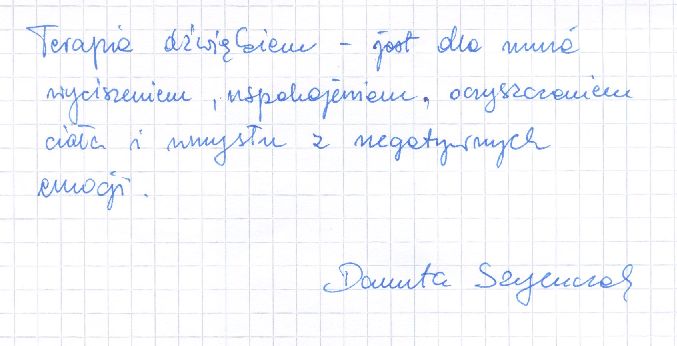 Terapia dźwiękiem - jest dla mnie
wyciszeniem, uspokojeniem, oczyszczaniem
ciała i umysłu z negatywnych
emocji.
Danuta